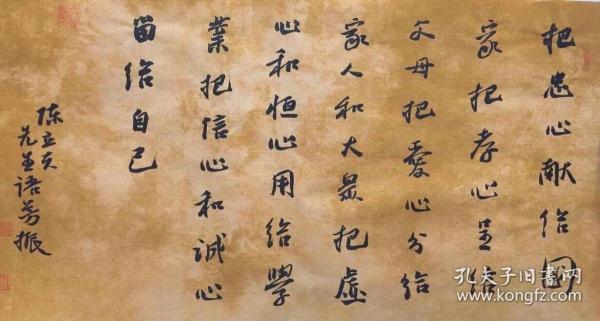 把忠心献给國
家把孝心呈给
父母把愛心分给
家人和大眾把虛
心和恒心用给學
業把信心和誠心
留给自己
陈立夫
先生语
孔夫子旧书网
www.kongfz.com